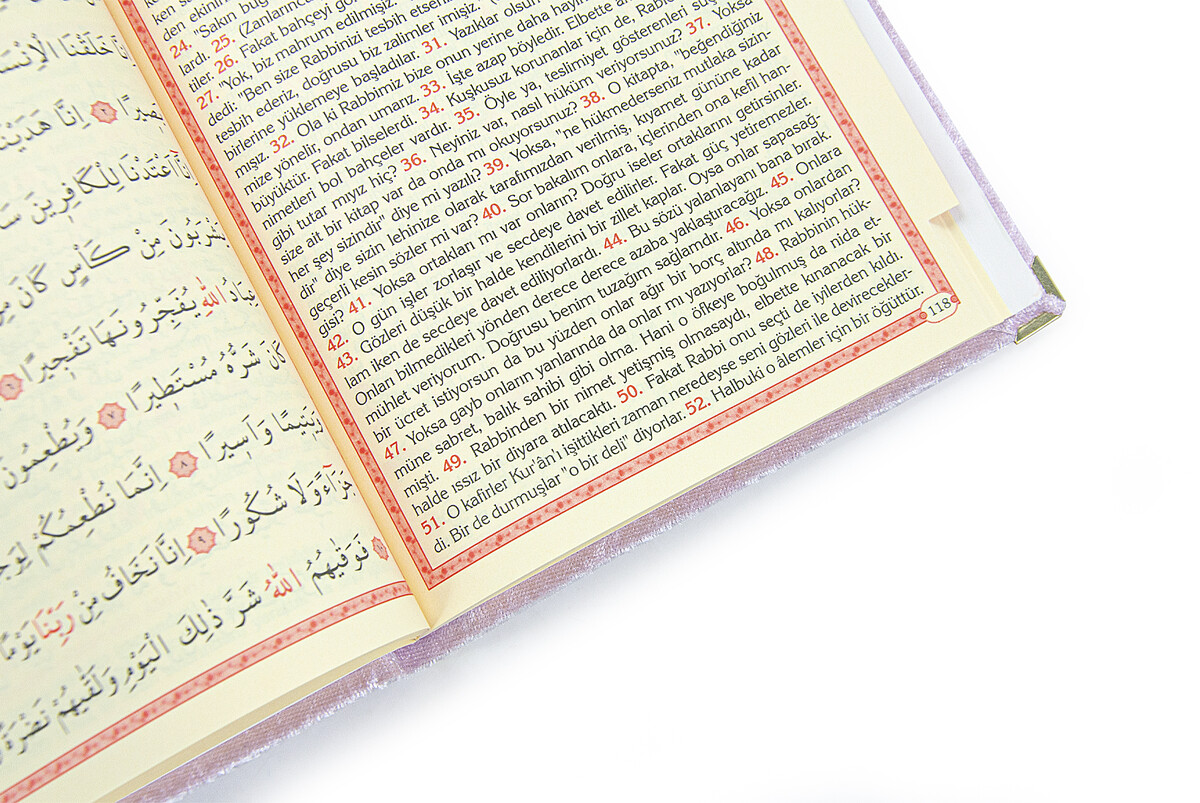 خَلَقْنَا الْاِنْسَا
اِنَّا هَدَيْنَا
اَعْتَدْنَا لِلْكَافِرِينَ
يَشْرَبُونَ مِنْ كَأْسٍ كَانَ
اللّٰهِ يُفَجِّرُونَهَا تَفْجِيرًا ٦
كَانَ شَرُّهُ مُسْتَطِيرًا ٧ وَيُطْعِمُونَ
وَيَتِيمًا وَاَسِيرًا ٨ اِنَّمَا نُطْعِمُكُمْ
جَزَاءً وَلَا شُكُورًا ٩ اِنَّا نَخَافُ مِنْ رَبِّنَا يَوْمًا
فَوَقٰيهُمُ اللّٰهُ شَرَّ ذٰلِكَ الْيَوْمِ وَلَقّٰيهُمْ نَضْرَةً
den ekinini
24. "Sakın bug
lardı. 25. (Zanlarınca
tiler. 26. Fakat bahçeyi gö
27. "Yok, biz mahrum edilmişiz.
dedi: "Ben size Rabbinizi tesbih etseni
tesbih ederiz, doğrusu biz zalimler imişiz."
birlerine yüklemeye başladılar. 31. Yazıklar olsun
mışız. 32. Ola ki Rabbimiz bize onun yerine daha hayır
mize yönelir, ondan umarız. 33. İşte azap böyledir. Elbette
büyüktür. Fakat bilselerdi. 34. Kuşkusuz korunanlar için de, Rable
nimetleri bol bahçeler vardır. 35. Öyle ya, teslimiyet gösterenleri suç
gibi tutar mıyız hiç? 36. Neyiniz var, nasıl hüküm veriyorsunuz? 37. Yoksa
size ait bir kitap var da onda mı okuyorsunuz? 38. O kitapta, "beğendiğiniz
her şey sizindir" diye mi yazılı? 39. Yoksa, "ne hükmederseniz mutlaka sizin-
dir" diye sizin lehinize olarak tarafımızdan verilmiş, kıyamet gününe kadar
geçerli kesin sözler mi var? 40. Sor bakalım onlara, içlerinden ona kefil han-
gisi? 41. Yoksa ortakları mı var onların? Doğru iseler ortaklarını getirsinler.
42. O gün işler zorlaşır ve secdeye davet edilirler. Fakat güç yetiremezler.
43. Gözleri düşük bir halde kendilerini bir zillet kaplar. Oysa onlar sapasağ-
lam iken de secdeye davet ediliyorlardı. 44. Bu sözü yalanlayanı bana bırak.
Onları bilmedikleri yönden derece derece azaba yaklaştıracağız. 45. Onlara
mühlet veriyorum. Doğrusu benim tuzağım sağlamdır. 46. Yoksa onlardan
bir ücret istiyorsun da bu yüzden onlar ağır bir borç altında mı kalıyorlar?
47. Yoksa gayb onların yanlarında da onlar mı yazıyorlar? 48. Rabbinin hük-
müne sabret, balık sahibi gibi olma. Hani o öfkeye boğulmuş da nida et-
mişti. 49. Rabbinden bir nimet yetişmiş olmasaydı, elbette kunanacak bir
halde ıssız bir diyara atılacaktı. 50. Fakat Rabbi onu seçti de iyilerden kıldı.
51. O kafirler Kur'ân'ı işittikleri zaman neredeyse seni gözleri ile devirecekler-
di. Bir de durmuşlar "o bir deli" diyorlar. 52. Halbuki o âlemler için bir öğüttür.
118